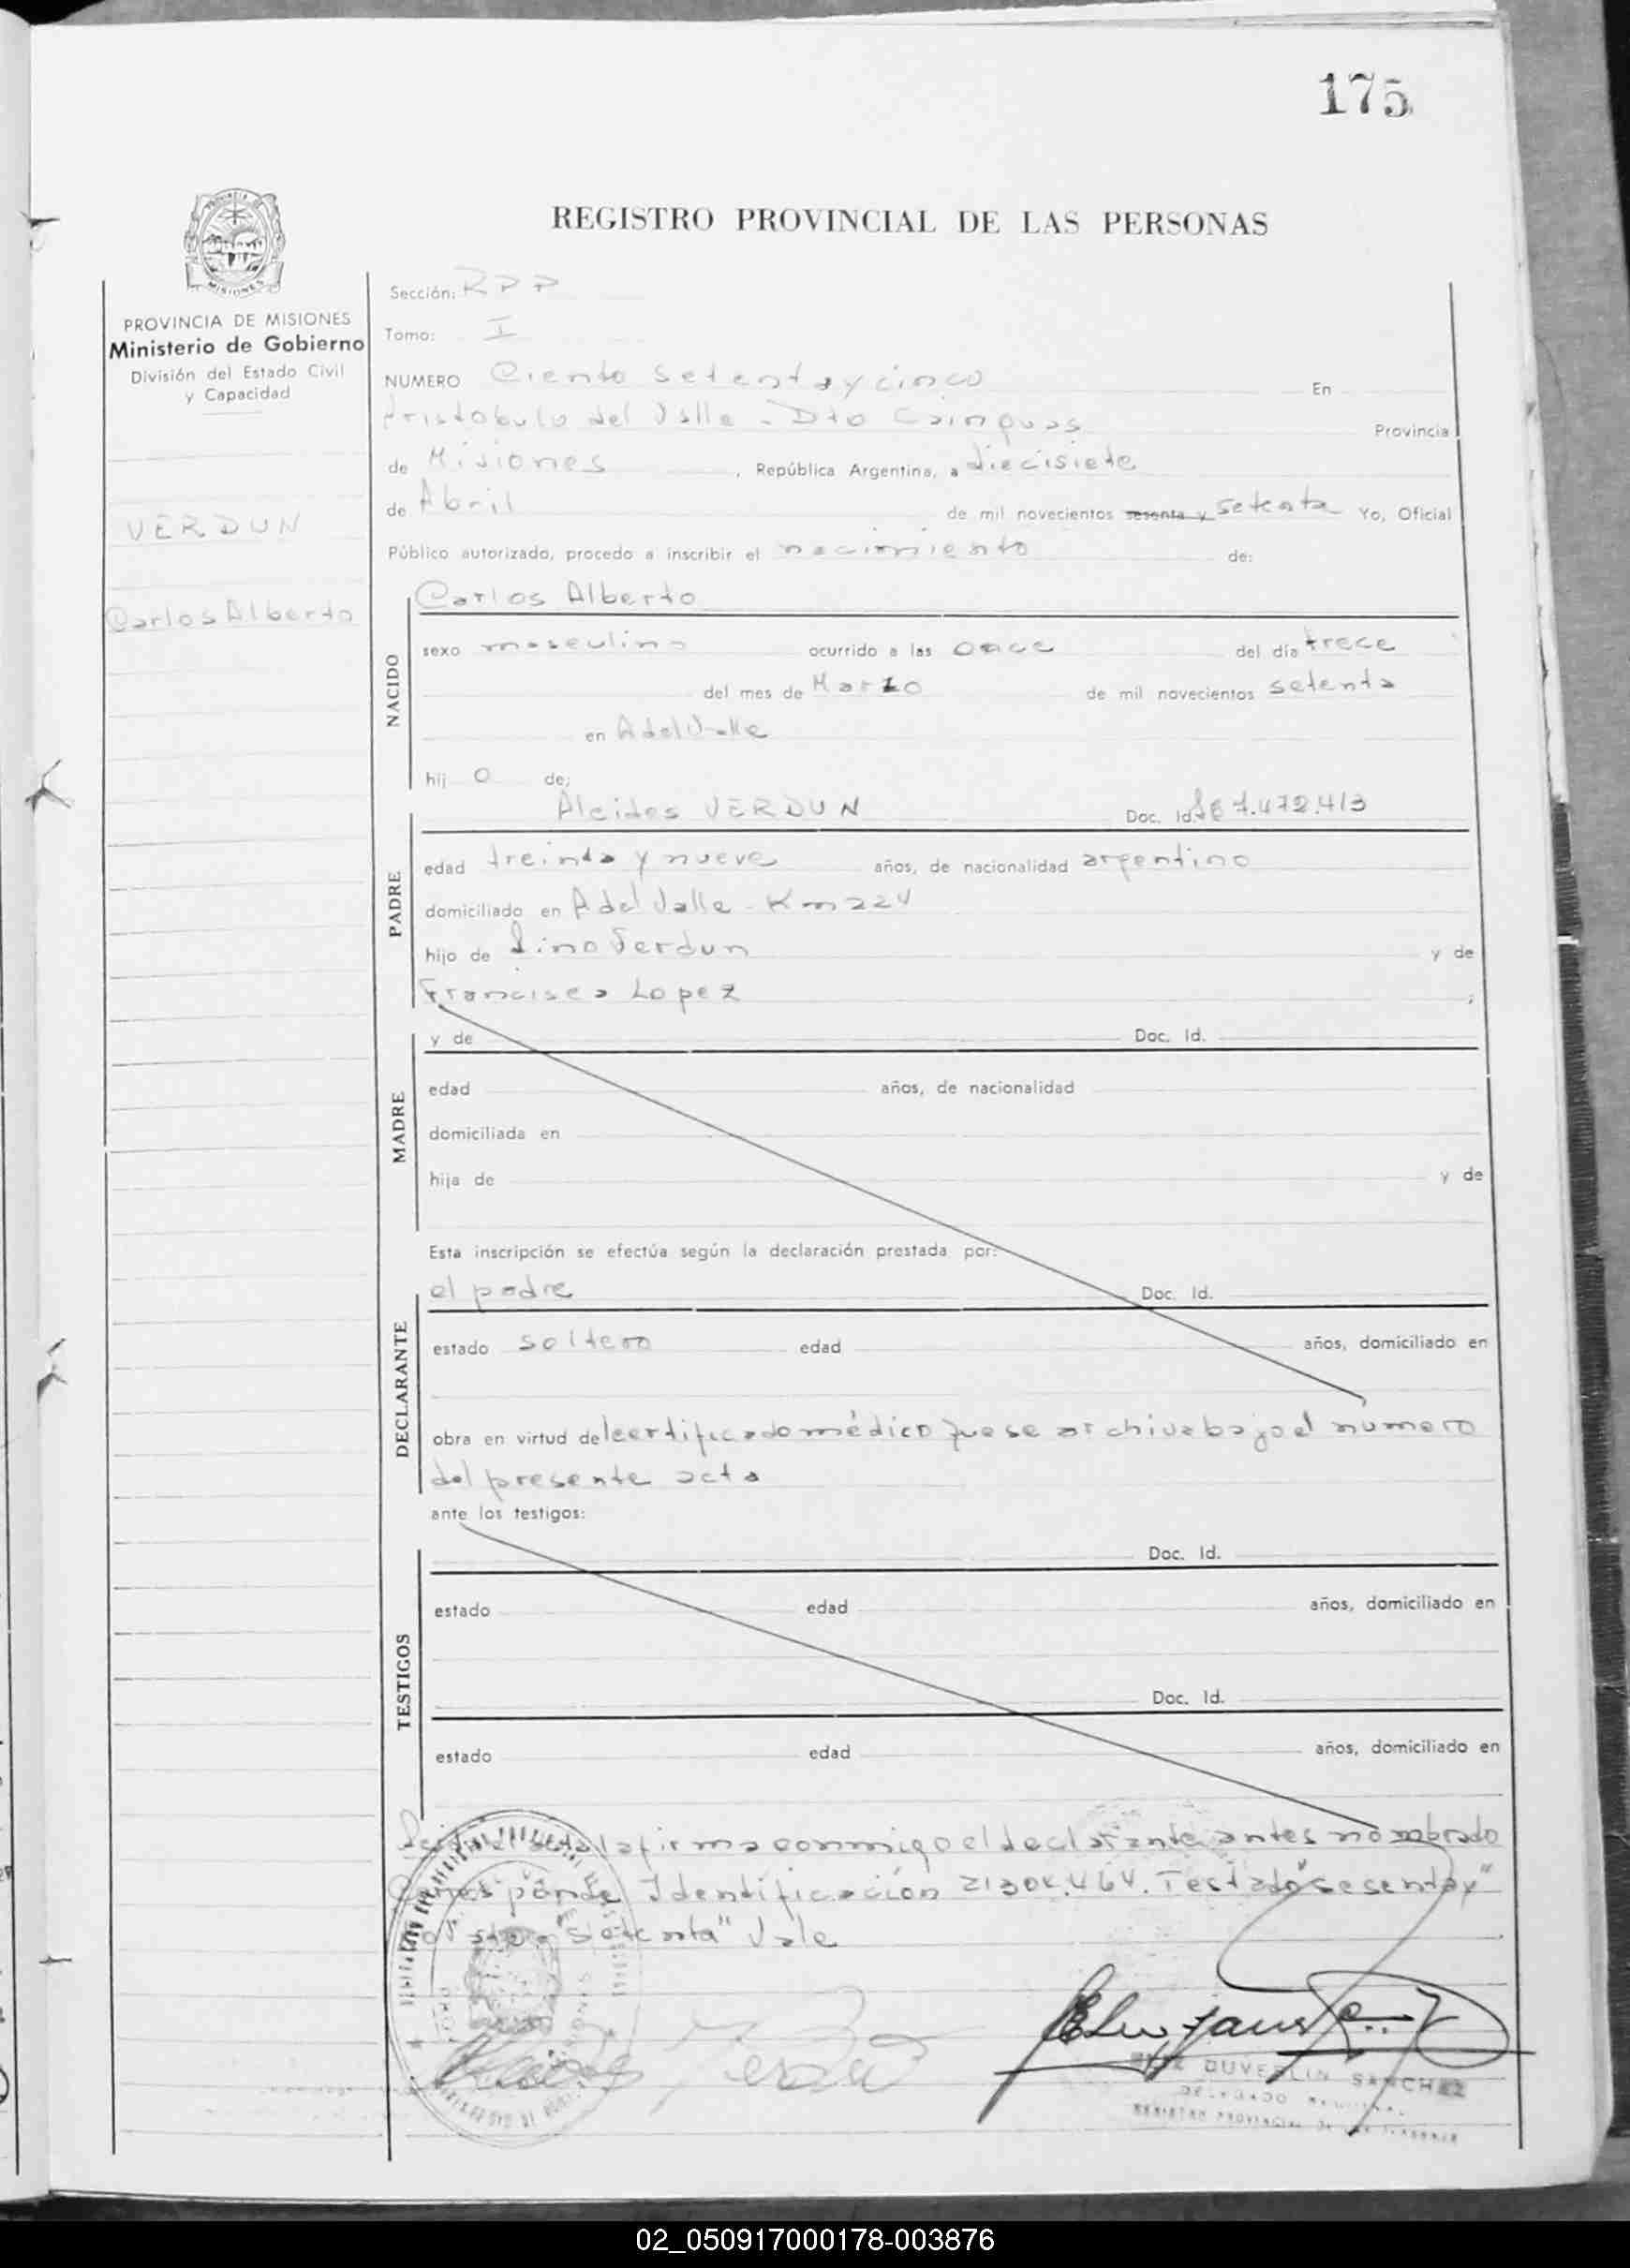 175
REGISTRO PROVINCIAL DE LAS PERSONAS
PROVINCIA DE MISIONES
Ministerio de Gobierno
División del Estado Civil
y Capacidad
VERDUN
Carlos Alberto
Sección: RPP
Tomo: I
NUMERO Ciento setenta y cinco En
Aristobulo del Valle - Dto Cainguas Provincia
de Misiones, República Argentina, a diecisiete
de Abril de mil novecientos sesenta y setenta Yo, Oficial
Público autorizado, procedo a inscribir el nacimiento de:
NACIDO
Carlos Alberto
sexo masculino ocurrido a las once del día trece
del mes de Marzo de mil novecientos setenta
en A del Valle
hij o de:
PADRE
Alcides VERDUN Doc. Id. 7.472.413
edad treinta y nueve años, de nacionalidad argentino
domiciliado en A del Valle - Km 224
hijo de Lino Verdun y de
Francisca Lopez ;
MADRE
y de Doc. Id.
edad años, de nacionalidad
domiciliada en
hija de y de
Esta inscripción se efectúa según la declaración prestada por:
DECLARANTE
el padre Doc. Id.
estado soltero edad años, domiciliado en
obra en virtud del certificado médico que se archiva bajo el numero
del presente acta
ante los testigos:
TESTIGOS
Doc. Id.
estado edad años, domiciliado en
Doc. Id.
estado edad años, domiciliado en
la firma conmigo el declarante antes nombrado
Identificación 21304.464. Testado "sesenta y"
"setenta" Vale
DUVERLIN SANCHEZ
DELEGADO
REGISTRO PROVINCIAL DE LAS PERSONAS
02_050917000178-003876